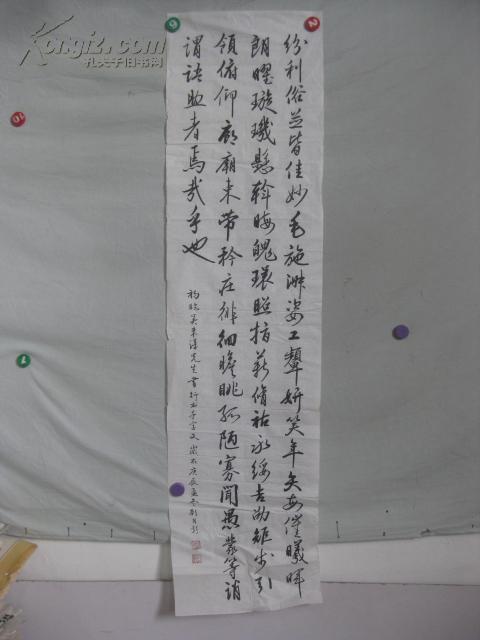 纷利俗并皆佳妙毛施淑姿工颦妍笑年矢每催曦晖
朗曜璇玑悬斡晦魄环照指薪修祜永绥吉劭矩步引
领俯仰廊庙束带矜庄徘徊瞻眺孤陋寡闻愚蒙等诮
谓语助者焉哉乎也
先生书行书千字文岁在庚辰
Kongfz.com
孔夫子旧书网
2
6